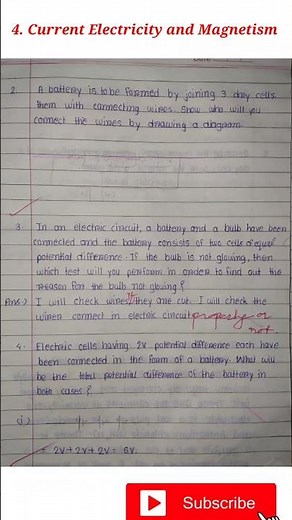 4. Current Electricity and Magnetism
2. A battery is to be formed by joining 3 dry cells.
them with connecting wires. Show who will you
connect the wires by drawing a diagram.
3. In an electric circuit, a battery and a bulb have been
connected and the battery consists of two cells of equal
potential difference. If the bulb is not glowing, then
which test will you perform in order to find out the
reason for the bulb not glowing?
Ans:) I will check wires if they are cut. I will check the
wires connect in electric circuit properly or
not.
4. Electric cells having 2v potential difference each have
been connected in the form of a battery. What will
be the total potential difference of the battery in
both cases?
(i)
= 2v+2v+2v= 6v.
Subscribe